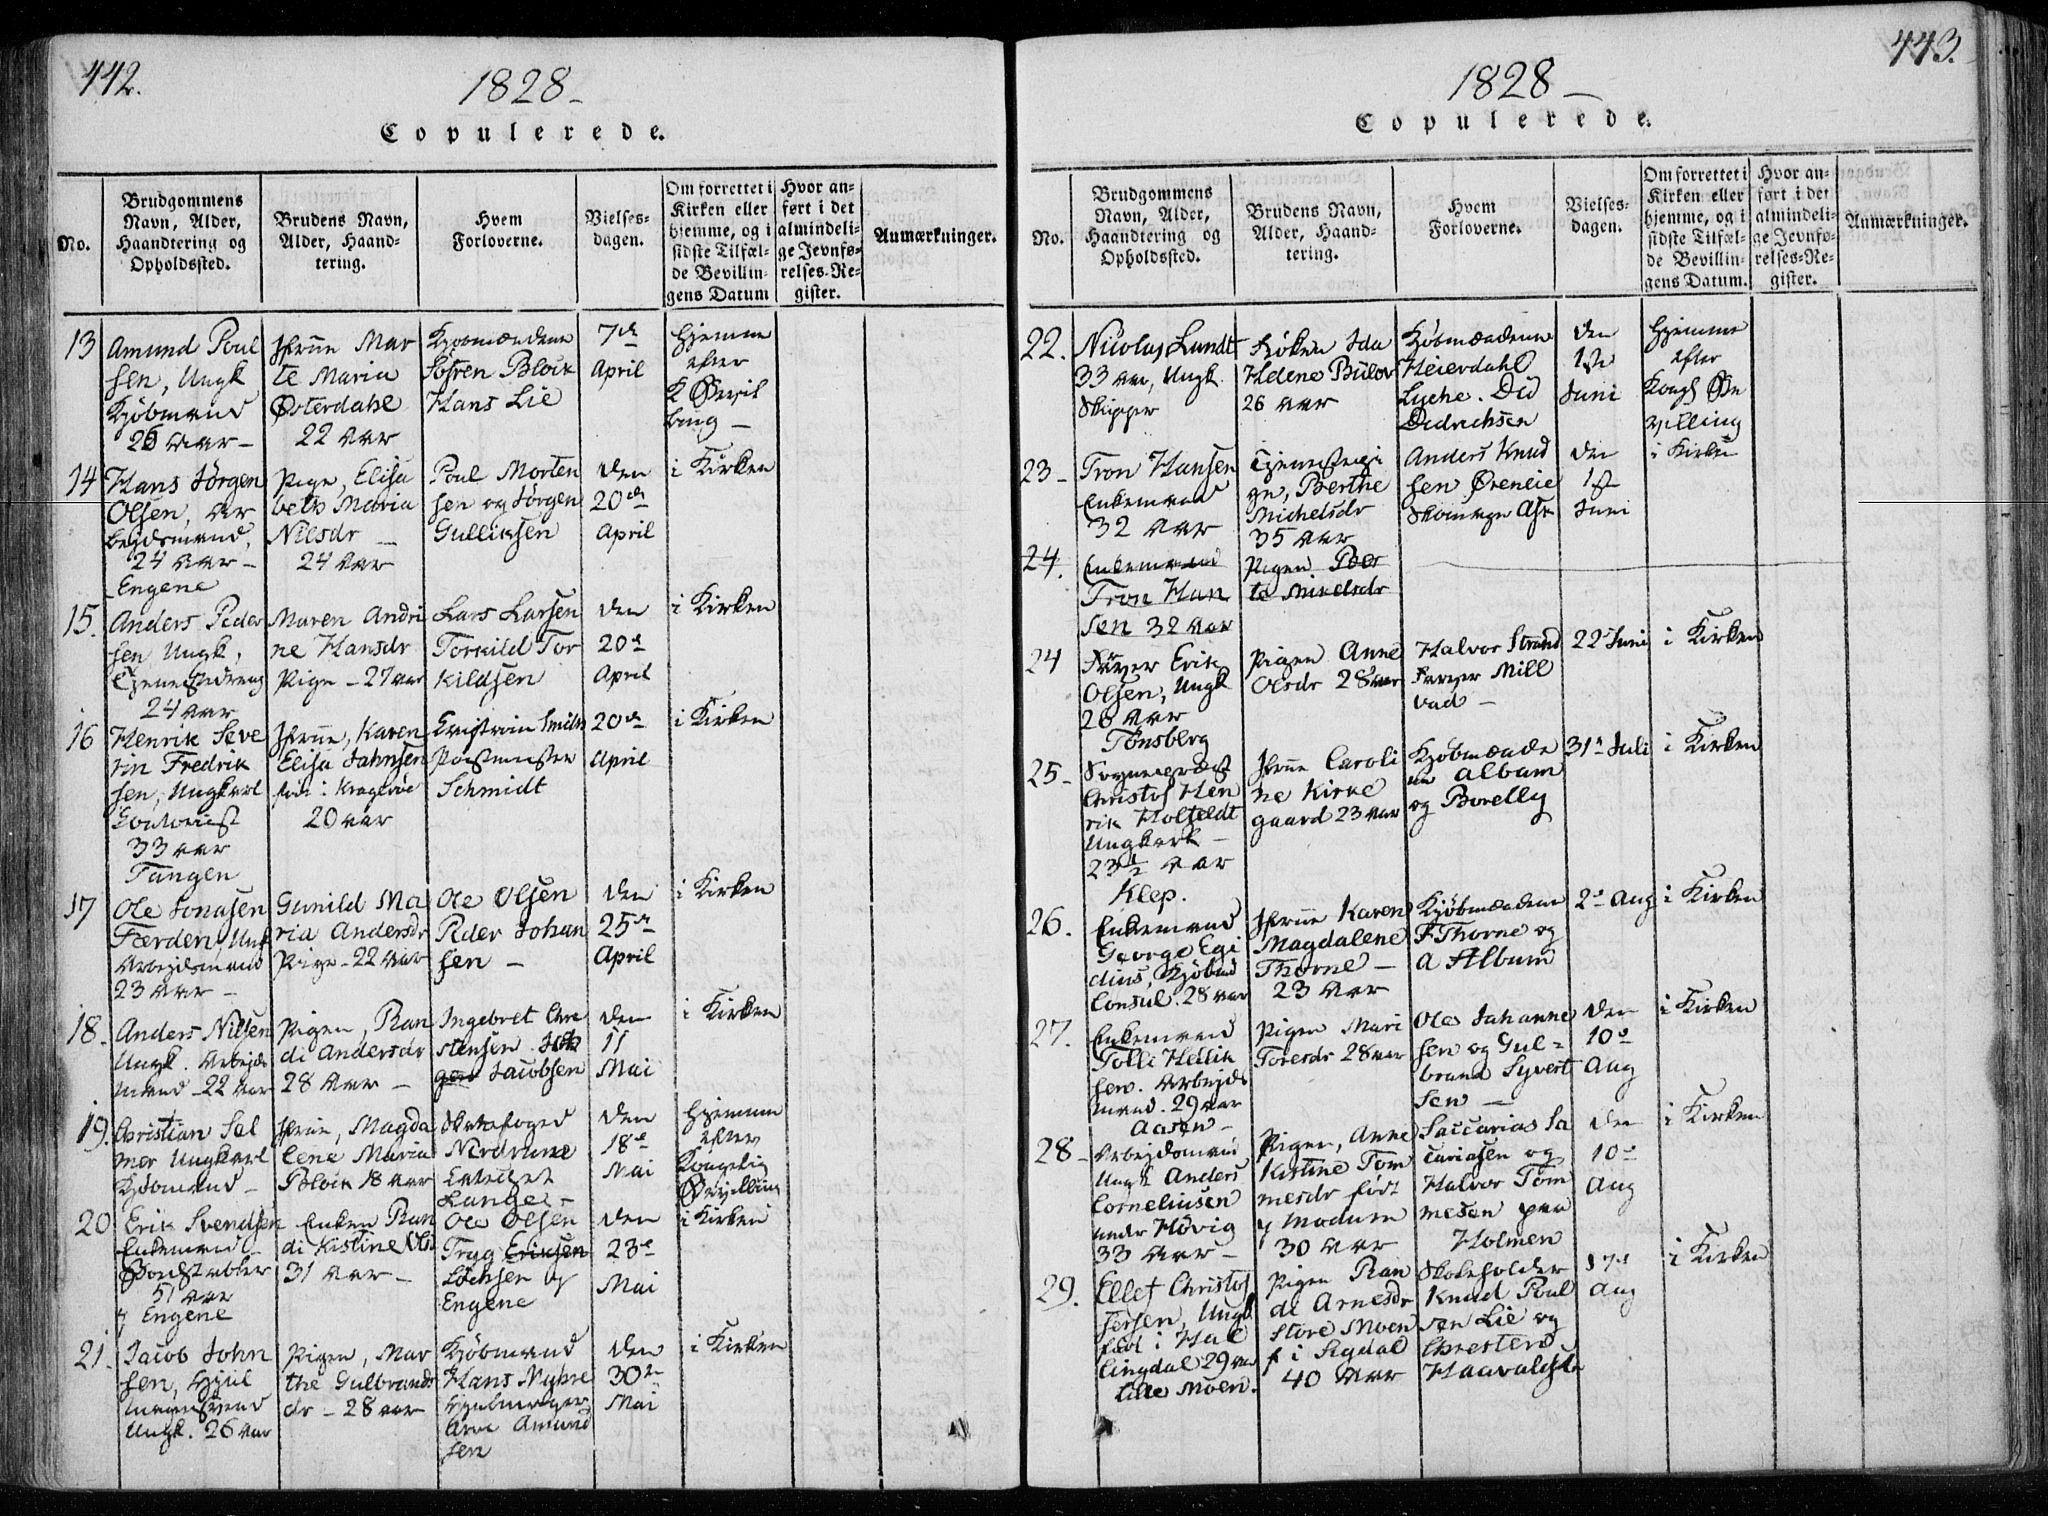 442.
1828 –
Copulerede.
No.
Brudgommens
Navn, Alder,
Haandtering og
Opholdssted.
Brudens Navn,
Alder, Haand-
tering.
Hvem
Forloverne.
Vielses-
dagen.
Om forrettet i
Kirken eller
hjemme, og i
sidste Tilfæl-
de Bevillin-
gens Datum
Hvor an-
ført i det
almindeli-
ge Jevnfø-
relses-Re-
gister.
Anmærkninger.
13
Amund Poul
sen, Ungk
Kjøbmand
26 Aar –
Jfrue Mar
te Maria
Østerdahl
22 Aar
Kjøbmændene
Søfren Block
Hans Lie
7de
April
Hjemme
efter
14
Hans Jörgen
Olsen, Ar
bejdsmand,
24 Aar –
Engene
Pige, Elisa
beth Maria
Nilsdr –
24 Aar
Poul Morten
sen og Jörgen
Gulliksen
den
20de
April
i Kirken
15.
Anders Peder
sen Ungk,
Tjenestedreng
24 Aar
Maren Andri
ne Hansdr
Pige – 27 Aar
Lars Larsen
Torkild Tor
kildsen
den
20de
April
i Kirken
16
Henrik Seve
rin Fredrik
sen, Ungkarl
Contorist
33 Aar
Tangen
Jfrue, Karen
Elisa Jahnsen
föd i Kragerøe
20 Aar
Smith
Postmester
Schmidt
20de
April
i Kirken
17
Ole Jonasen
Færden, Unk
Arbejdsmand
23 Aar –
Gunild Ma
ria Andersdr
Pige – 22 Aar
Ole Olsen
Peder Johan
sen –
den
25de
April
i Kirken
18.
Anders Nilsen
Ungk. Arbejds
mand – 22 Aar
Pigen, Ran
di Andersdr
28 Aar –
Ingebret Chri
stensen
Jacobsen
den
11
Mai
i Kirken
19.
Christian Sal
mer Ungkarl
Kjøbmand –
Jfrue, Magda
lene Maria
Block 18 Aar
Nerdrum
Lange –
den
18de
Mai
Hjemme
efter
Kongelig
20
Erik Svendsen
Enkemand –
51 Aar
Engene
Enken Ran
di Kistine
31 Aar –
Ole Olsen
Tryg Eriksen
Engene
den
23de
Mai
i Kirken
21.
Jacob John
sen,
Ungk. 26 Aar
Pigen, Mar
the Gulbrands
dr – 28 Aar
Kjøbmand
Hans Myhre
Arne Amund
sen
den
30te
Mai
i Kirken
443.
1828 –
Copulerede.
No.
Brudgommens
Navn, Alder,
Haandtering og
Opholdssted.
Brudens Navn,
Alder, Haand-
tering.
Hvem
Forloverne.
Vielses-
dagen.
Om forrettet i
Kirken eller
hjemme, og i
sidste Tilfæl-
de Bevillin-
gens Datum.
Hvor an-
ført i det
almindeli-
ge Jevnfø-
relses-Re-
gister.
Anmærkninger.
22.
Nicolay Lundt
33 Aar, Ungk.
Skipper
Frøken Ida
Helene Bülow
26 Aar
Kjøbmændene
Heierdahl
Lyche. Did
Didrichsen
den
1ste
Juni
Hjemme
efter
Kongl Be
villing
23 –
Tron Hansen
Enkemand
32 Aar
Tjenestepi
gen, Berthe
Michelsdr
35 Aar
Anders Knud
sen Øreneie
den
1ste
Juni
i Kirken
24.
Enkemand
Tron Han
sen 32 Aar
Pigen Ber
te Mikelsdr
24
Farver Erik
Olsen, Ungk
28 Aar
Tønsberg
Pigen Anne
Olsdr 28 Aar
Halvor Strand
Farver Mill
vad –
22 Juni
i Kirken
25 –
Sogneprest
Christof Hen
rik Holfeldt
Ungkarl –
23½ Aar
Klep.
Jfrue Caroli
ne Kirke
gaard 23 Aar
Kjøbmænde
ne Album
og Borelly
31te Juli
i Kirken
26.
Enkemand
George Egi
dius, Kjøbmd
Consul. 28 Aar
Jfrue Karen
Magdalene
Thorne –
23 Aar
Kjøbmændene
F Thorne og
A Album
2de Aug
i Kirken
27.
Enkemand
Tolli Hellik
sen. Arbejds
mand. 29 Aar
Aasen –
Pigen Mari
Toresdr 28 Aar
Ole Johanne
sen og Gul=
brand Syvert
sen –
den
10de
Aug
i Kirken
28 –
Arbejdsmand
Ungk Anders
Corneliusen
under Høvig
33 Aar –
Pigen, Anne
Kistine Tom
mesdr født
Modum
30 Aar
Saccarias Sa
cariasen og
Halvor Tom
mesen paa
Holmen
den
10de
Aug
i Kirken
29.
Ellef Christof
fersen, Ungk
fød i Hal
lingdal 29 Aar
Lille Moen.
Pigen Ran
di Arnesdr
Store Moen
f i Sigdal
40 Aar
Skoleholder
Knud Poul
sen Lie og
Chresten
17de
Aug
i Kirken